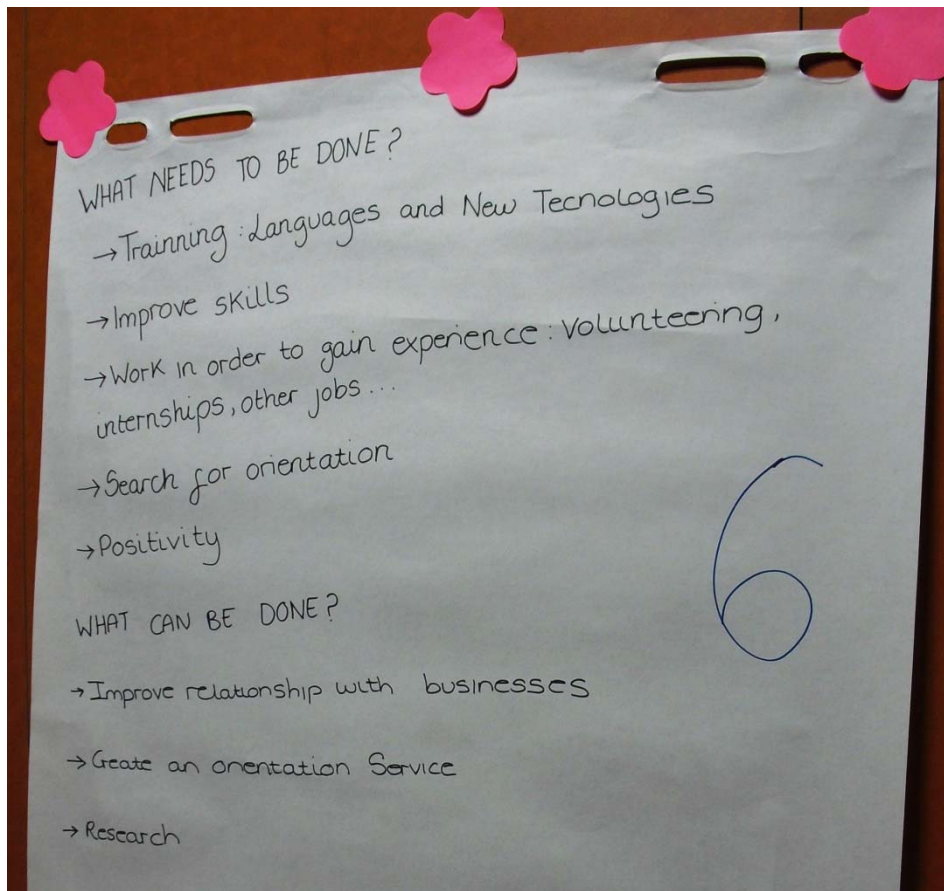 WHAT NEEDS TO BE DONE?
→Trainning: Languages and New Tecnologies
→Improve skills
→Work in order to gain experience: volunteering,
internships, other jobs...
→Search for orientation
→Positivity
6
WHAT CAN BE DONE?
→Improve relationship with businesses
→Create an orientation Service
→Research